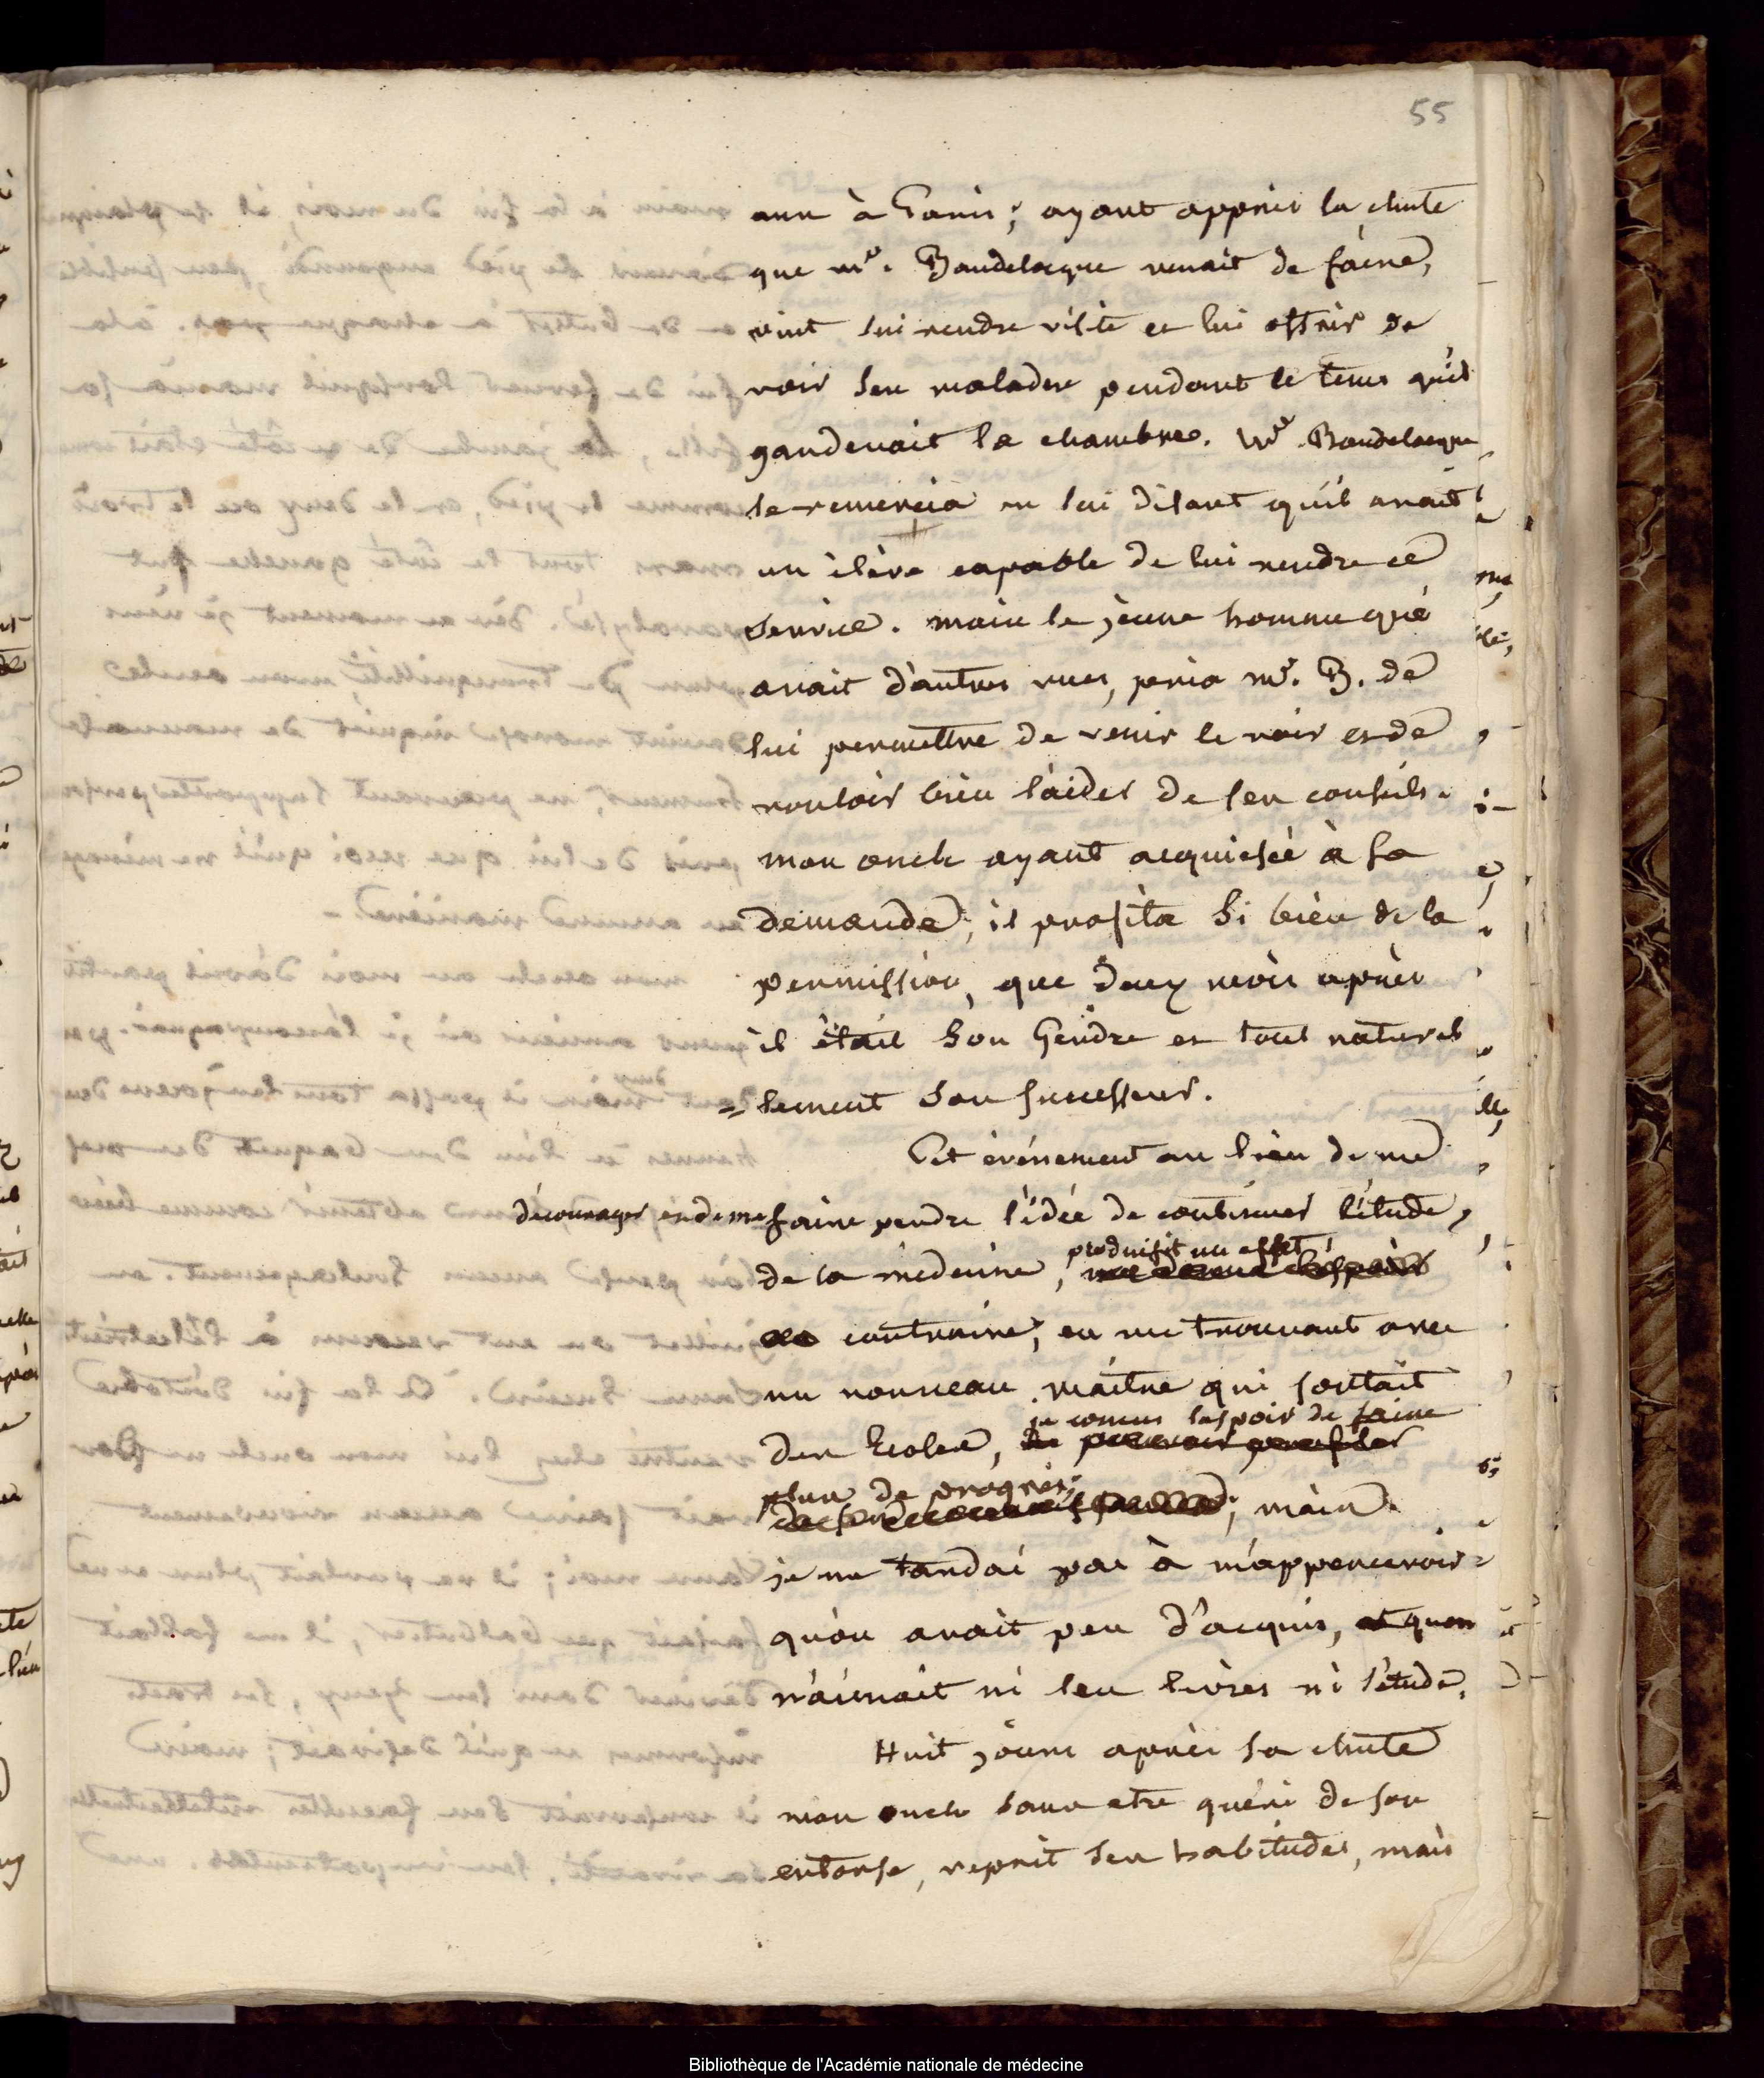 55
ann à Paris; ayant appris la chute
que mr. Baudelocque venait de faire,
vint lui rendre visite et lui offrir de
voir ses malades pendant le tems qu'il
garderait la chambre. Mr. Baudelocque
le remercia en lui disant qu'il avait
un élève capable de lui rendre ce
service. mais le jeune homme qui
avait d'autres vues, pria mr. B. de
lui permettre de venir le voir et de
vouloir bien l'aider de ses conseils.
mon oncle ayant acquiescé à sa
demande, il profita si bien de la
permission, que deux mois après
il était son Gendre et tout naturel
=lement son successeur.
Cet événement au lieu de me
décourager et de me faire perdre l'idée de continuer l'étude,
de la médecine, produisit un effet
contraire; en me trouvant avec
un nouveau maître qui sortait
des Ecoles, je conçus l'espoir de faire
plus de progrès; mais
je ne tardai pas à m'appercevoir
qu'on avait peu d'acquis, et qu'on
n'aimait ni les livres ni l'étude.
Huit jours après sa chute
mon oncle sans etre guéri de son
entorse, reprit ses habitudes, mais
Bibliothèque de l'Académie nationale de médecine